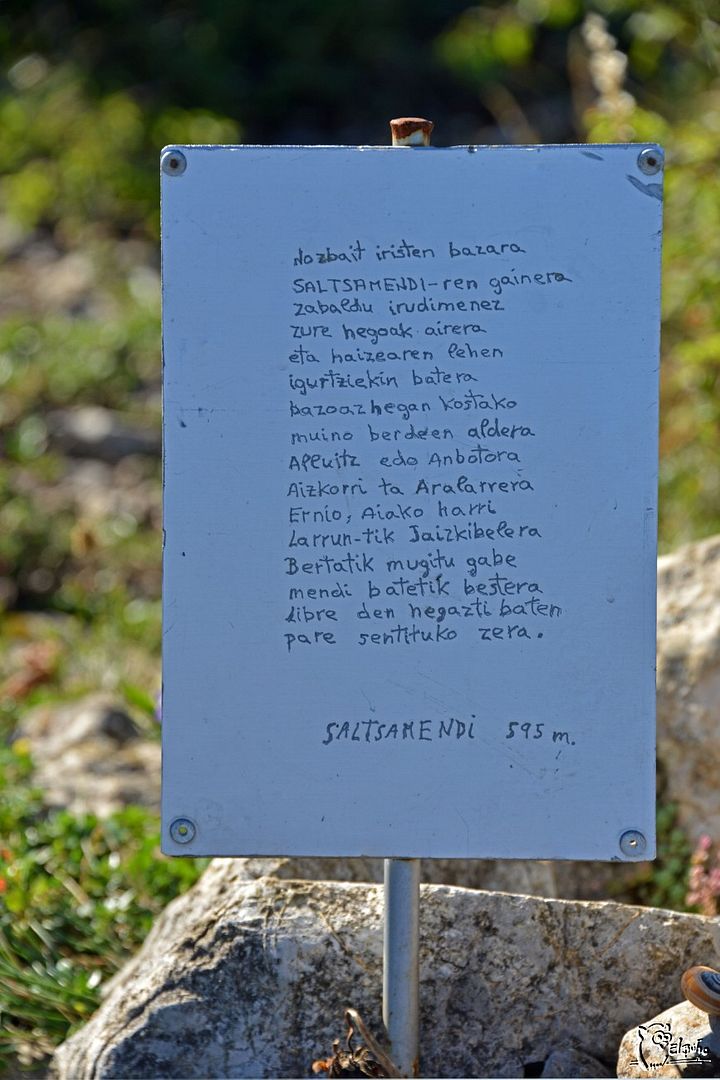 Nozbait iristen bazara
SALTSAMENDI-ren gainera
zabaldu irudimenez
zure hegoak airera
eta haizearen lehen
igurtziekin batera
bazoaz hegan kostako
muino berdeen aldera
Alluitz edo Anbotora
Aizkorri ta Aralarrera
Ernio, Aiako harri
Larrun-tik Jaizkibelera
Bertatik mugitu gabe
mendi batetik bestera
libre den hegazti baten
pare sentituko zera.
SALTSAMENDI 595 m.